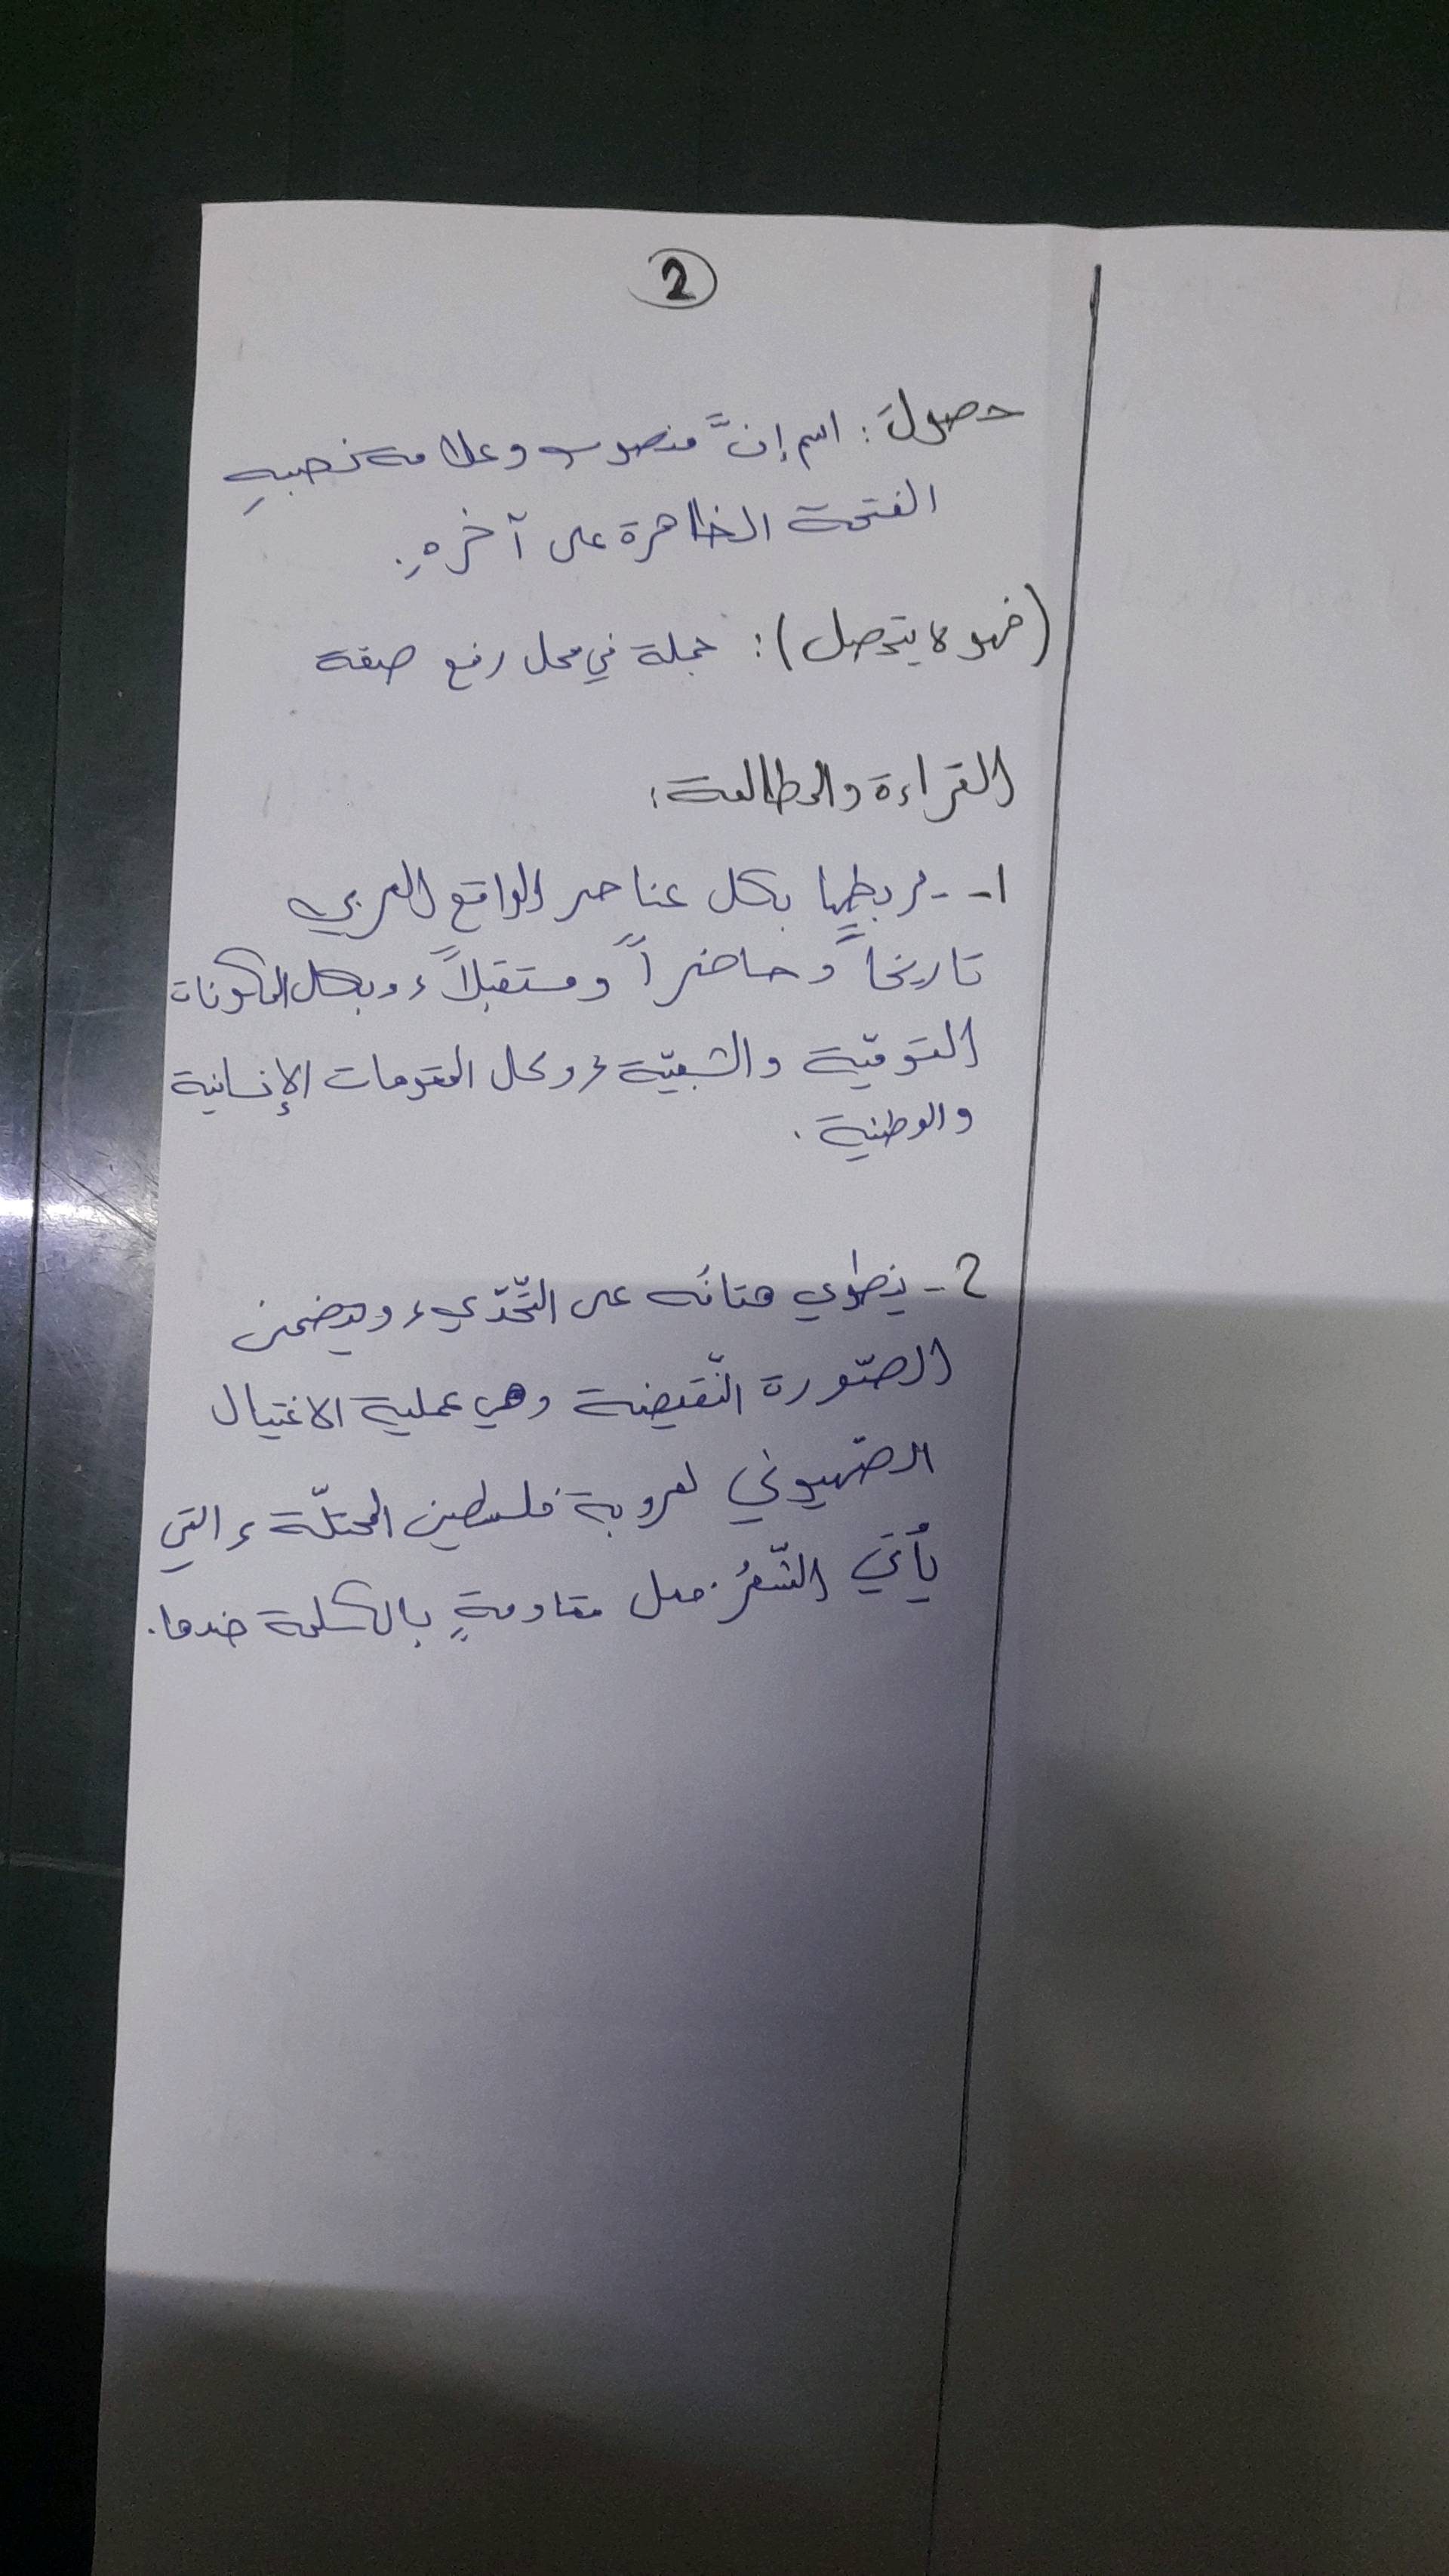 2
حصولَ: اسم إنَّ منصوب وعلامة نصبهِ
الفتحة الظاهرة على آخرهِ.
(فهو لا يتحصل): جملة في محل رفع صفة
القراءة والمطالعة:
1- - يربطها بكل عناصر الواقع العربي
تاريخاً وحاضراً ومستقبلاً، وبكل المكونات
القوميّة والشعبيّة، وكل المقومات الإنسانية
والوطنية.
2- ينطوي هتافُه على التّحدّي، ويتضمن
الصّورة النّقيضة وهي عملية الاغتيال
الصّهيوني لعروبة فلسطين المحتلّة، والتي
يأتي الشّعرُ مقاومةٍ بالكلمة ضدها.